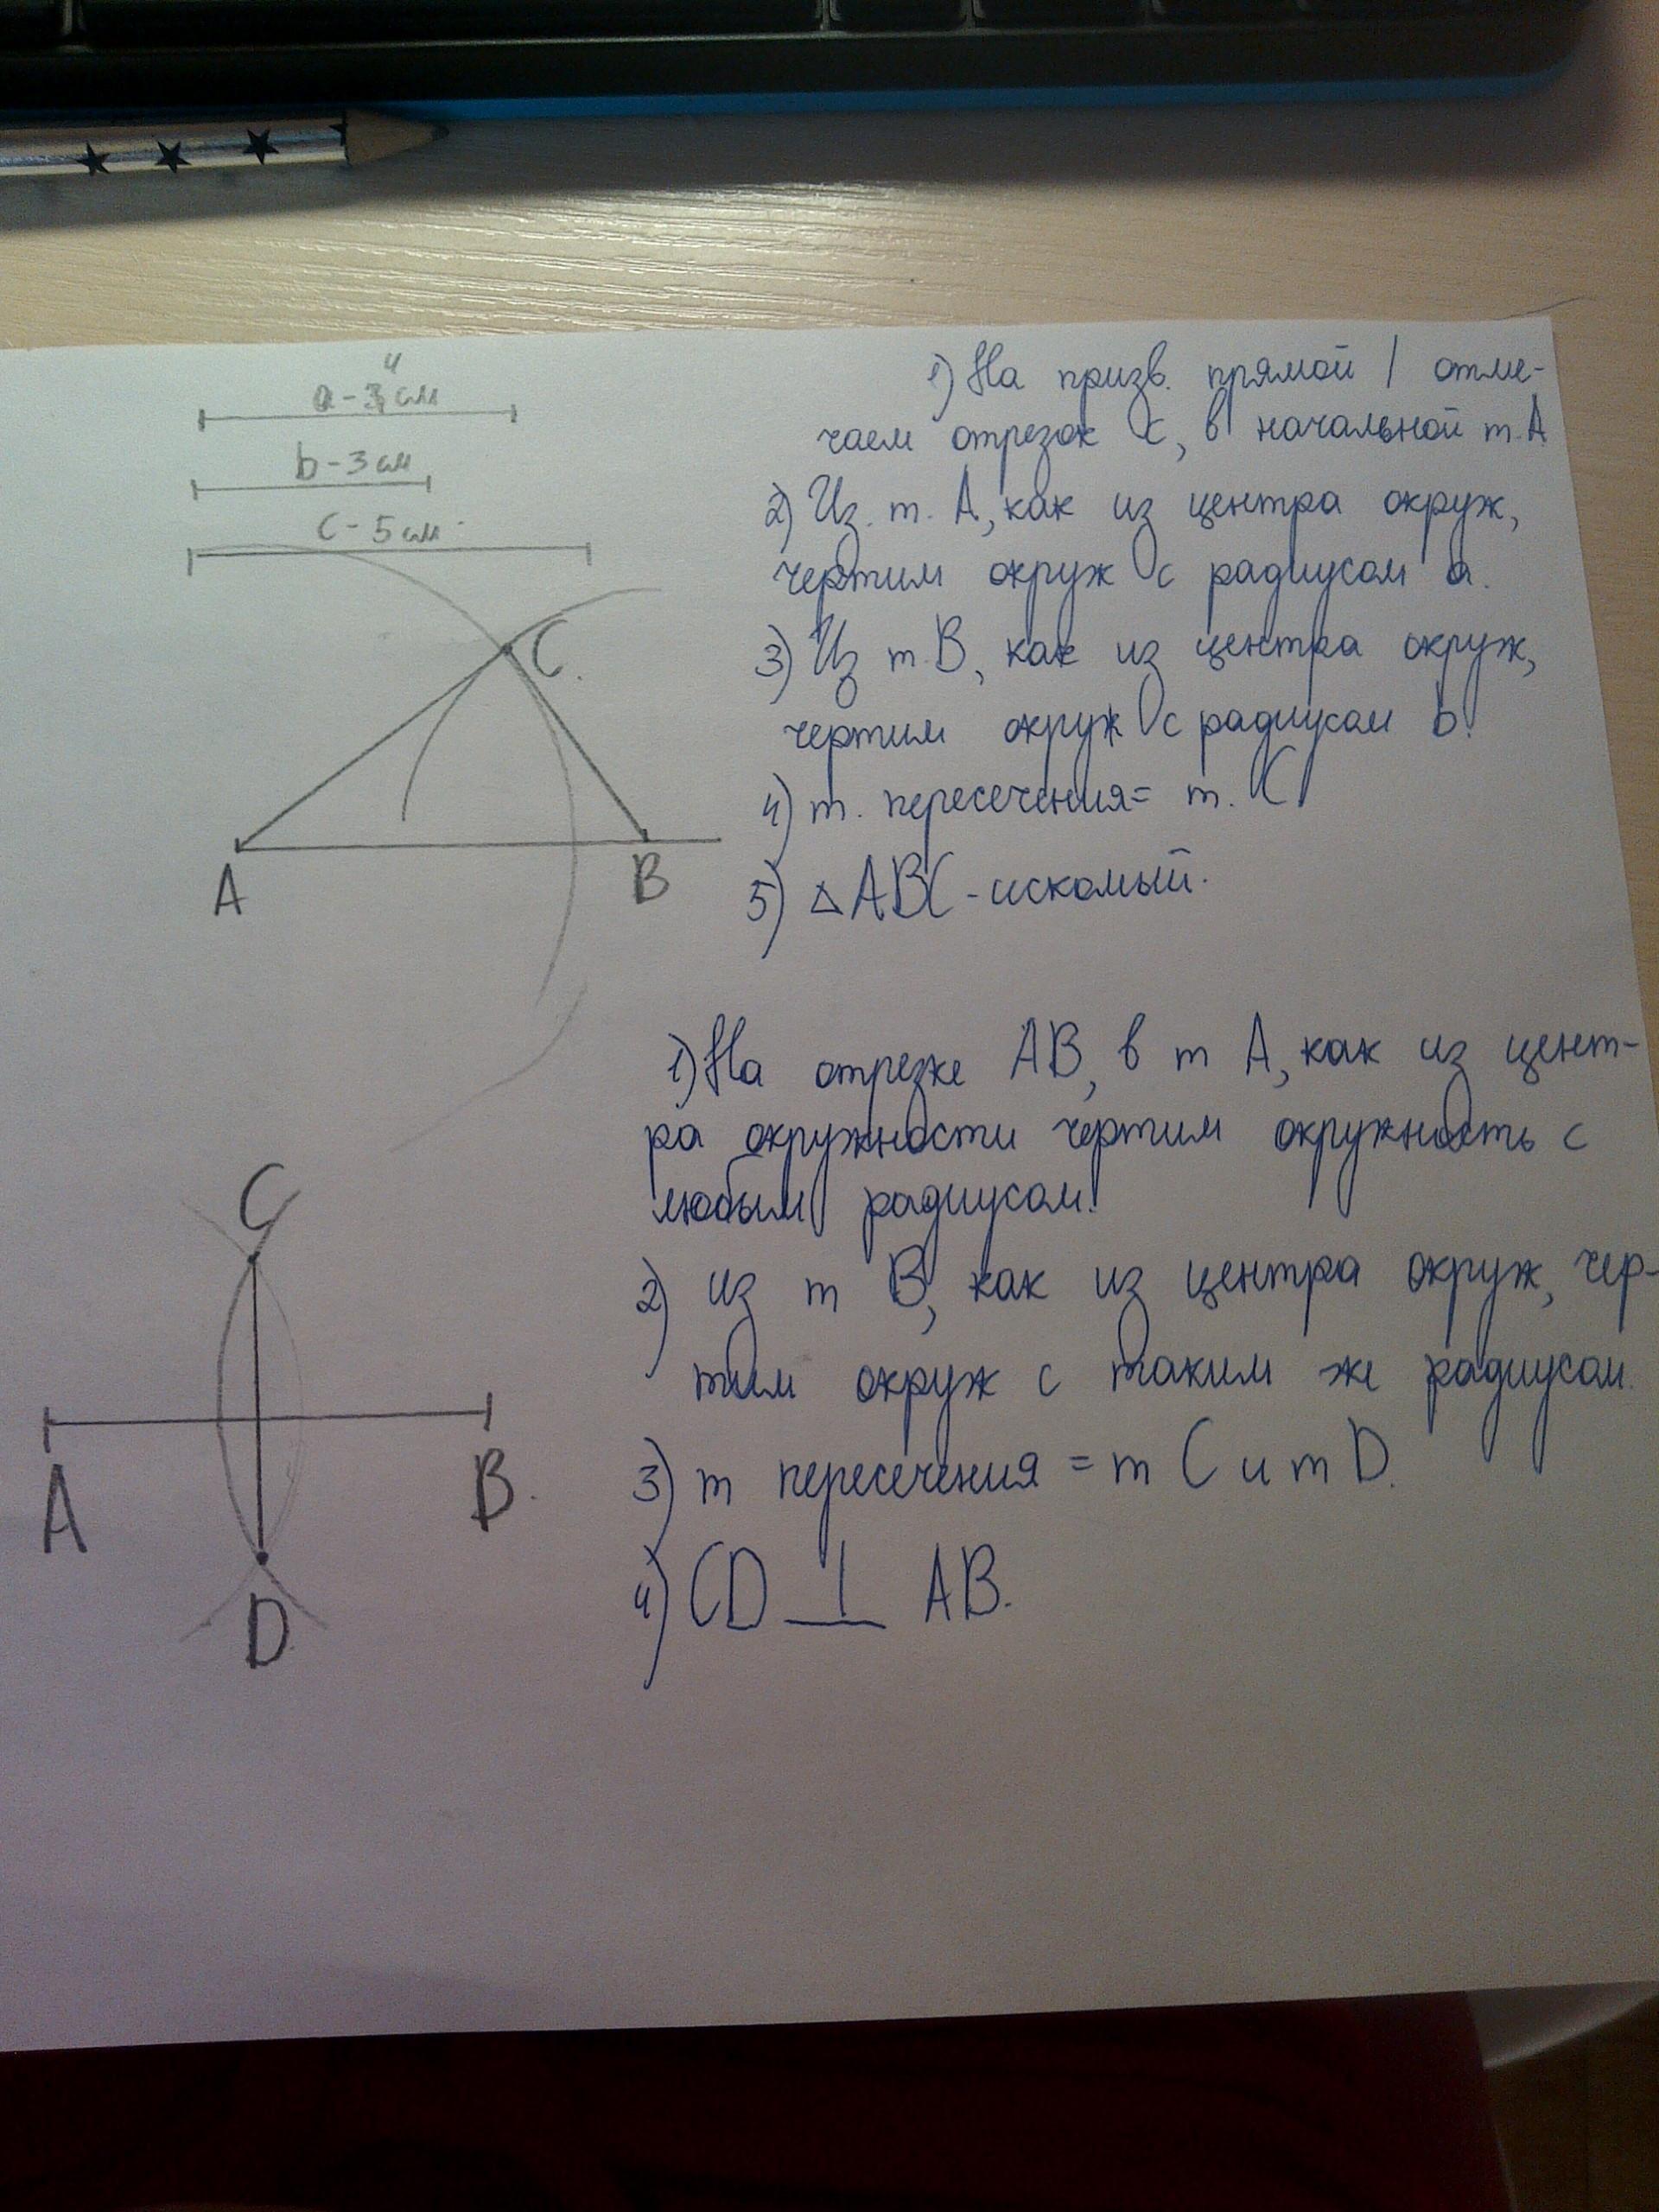 a-3см
4
b-3см
c-5см
C
A
B
1) На призв. прямой l отме-
чаем отрезок c, в начальной т.А
2) Из. т. А, как из центра окруж,
чертим окруж с радиусом a.
3) Из т.В, как из центра окруж,
чертим окруж с радиусом b.
4) т. пересечения= т. С
5) △ABC-искомый.
1) На отрезке АВ, в т А, как из цент-
ра окружности чертим окружность с
любым радиусом.
2) из т В, как из центра окруж, чер-
тим окруж с таким же радиусом.
3) т пересечения = т С и т D.
4) CD ⊥ AB.
C
A
B.
D